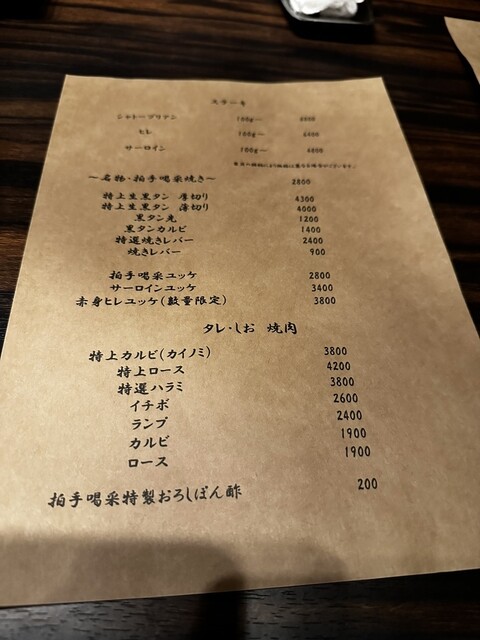 ステーキ
シャトーブリアン 100g〜 8800
ヒレ 100g〜 6800
サーロイン 100g〜 4800
〜名物・拍手喝采焼き〜 2800
特上生黒タン 厚切り 4300
特上生黒タン 薄切り 4000
黒タン先 1200
黒タンカルビ 1400
特選焼きレバー 2400
焼きレバー 900
拍手喝采ユッケ 2800
サーロインユッケ 3400
赤身ヒレユッケ(数量限定) 3800
タレ・しお 焼肉
特上カルビ(カイノミ) 3800
特上ロース 4200
特選ハラミ 3800
イチボ 2600
ランプ 2400
カルビ 1900
ロース 1900
拍手喝采特製おろしぽん酢 200